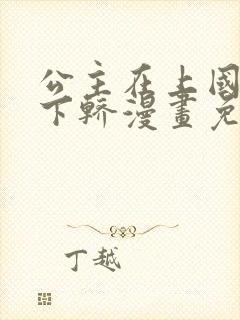 公主在上國
下轎漫畫免
丁越